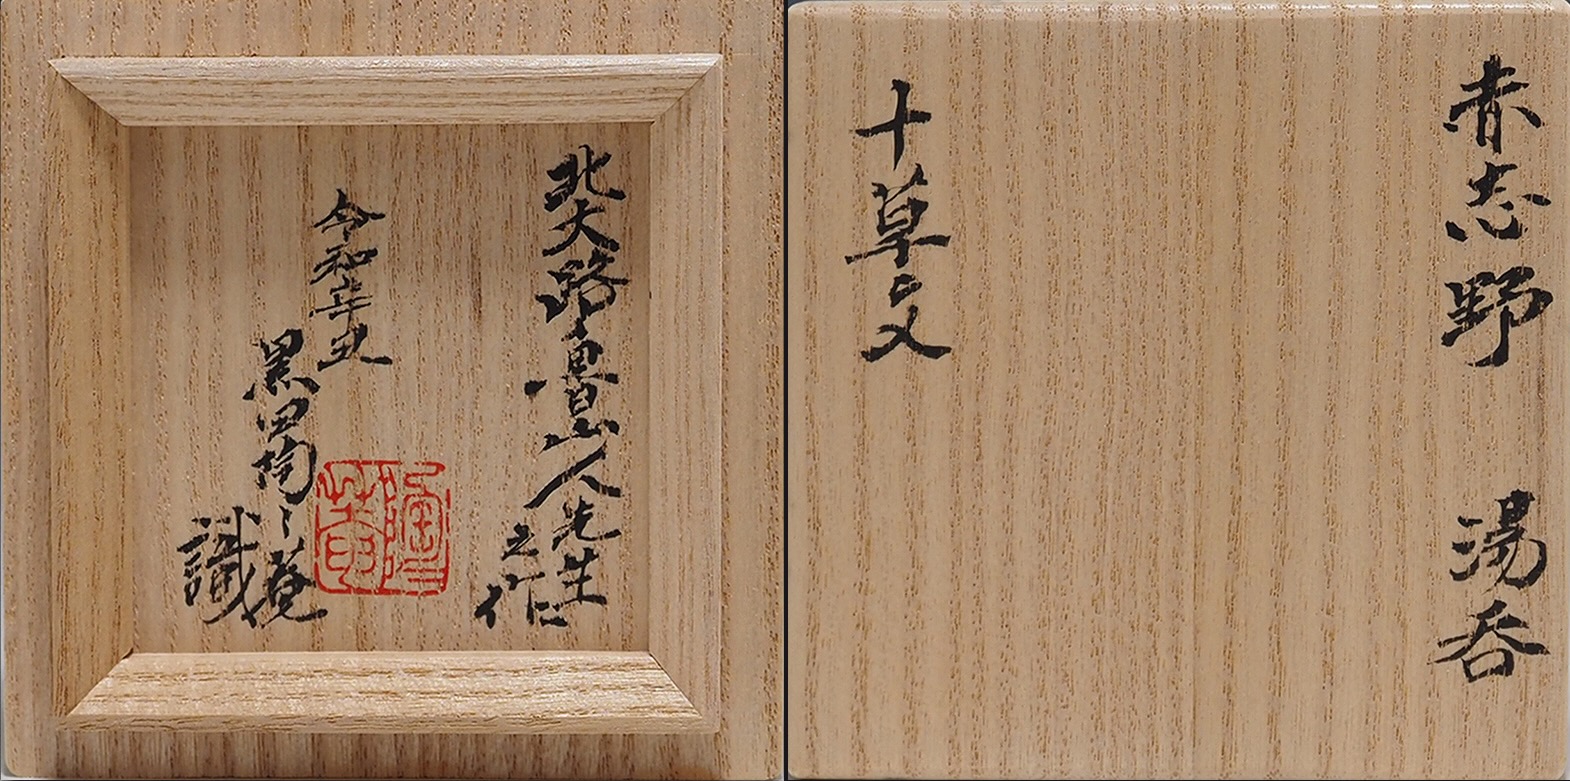 北大路魯山人先生
之作
令和辛丑
黒田陶々菴
識
赤志野 湯呑
十草文